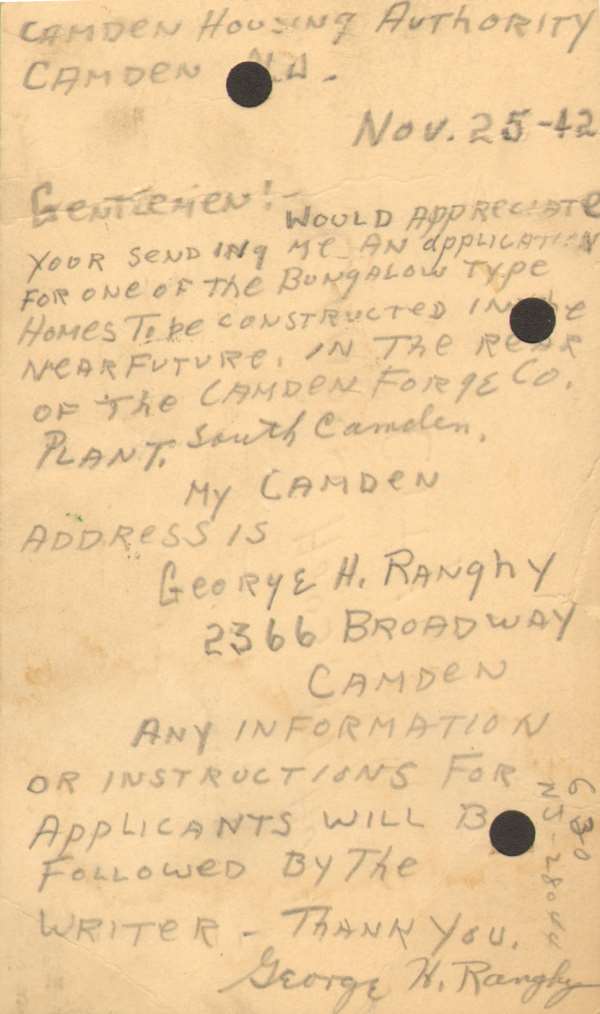 CAMDEN HOUSING AUTHORITY
CAMDEN N.J.
NOV. 25-42
GENTLEMEN!-
WOULD APPRECIATE
YOUR SENDING ME AN APPLICATION
FOR ONE OF THE BUNGALOW TYPE
HOMES TO BE CONSTRUCTED IN THE
NEAR FUTURE. IN THE REAR
OF THE CAMDEN FORGE CO.
PLANT. South Camden.
MY CAMDEN
ADDRESS IS
GEORGE H. RANGHY
2366 BROADWAY
CAMDEN
ANY INFORMATION
OR INSTRUCTIONS FOR
APPLICANTS WILL B
FOLLOWED BY THE
WRITER - THANK YOU.
George H. Ranghy
630
NJ-28044